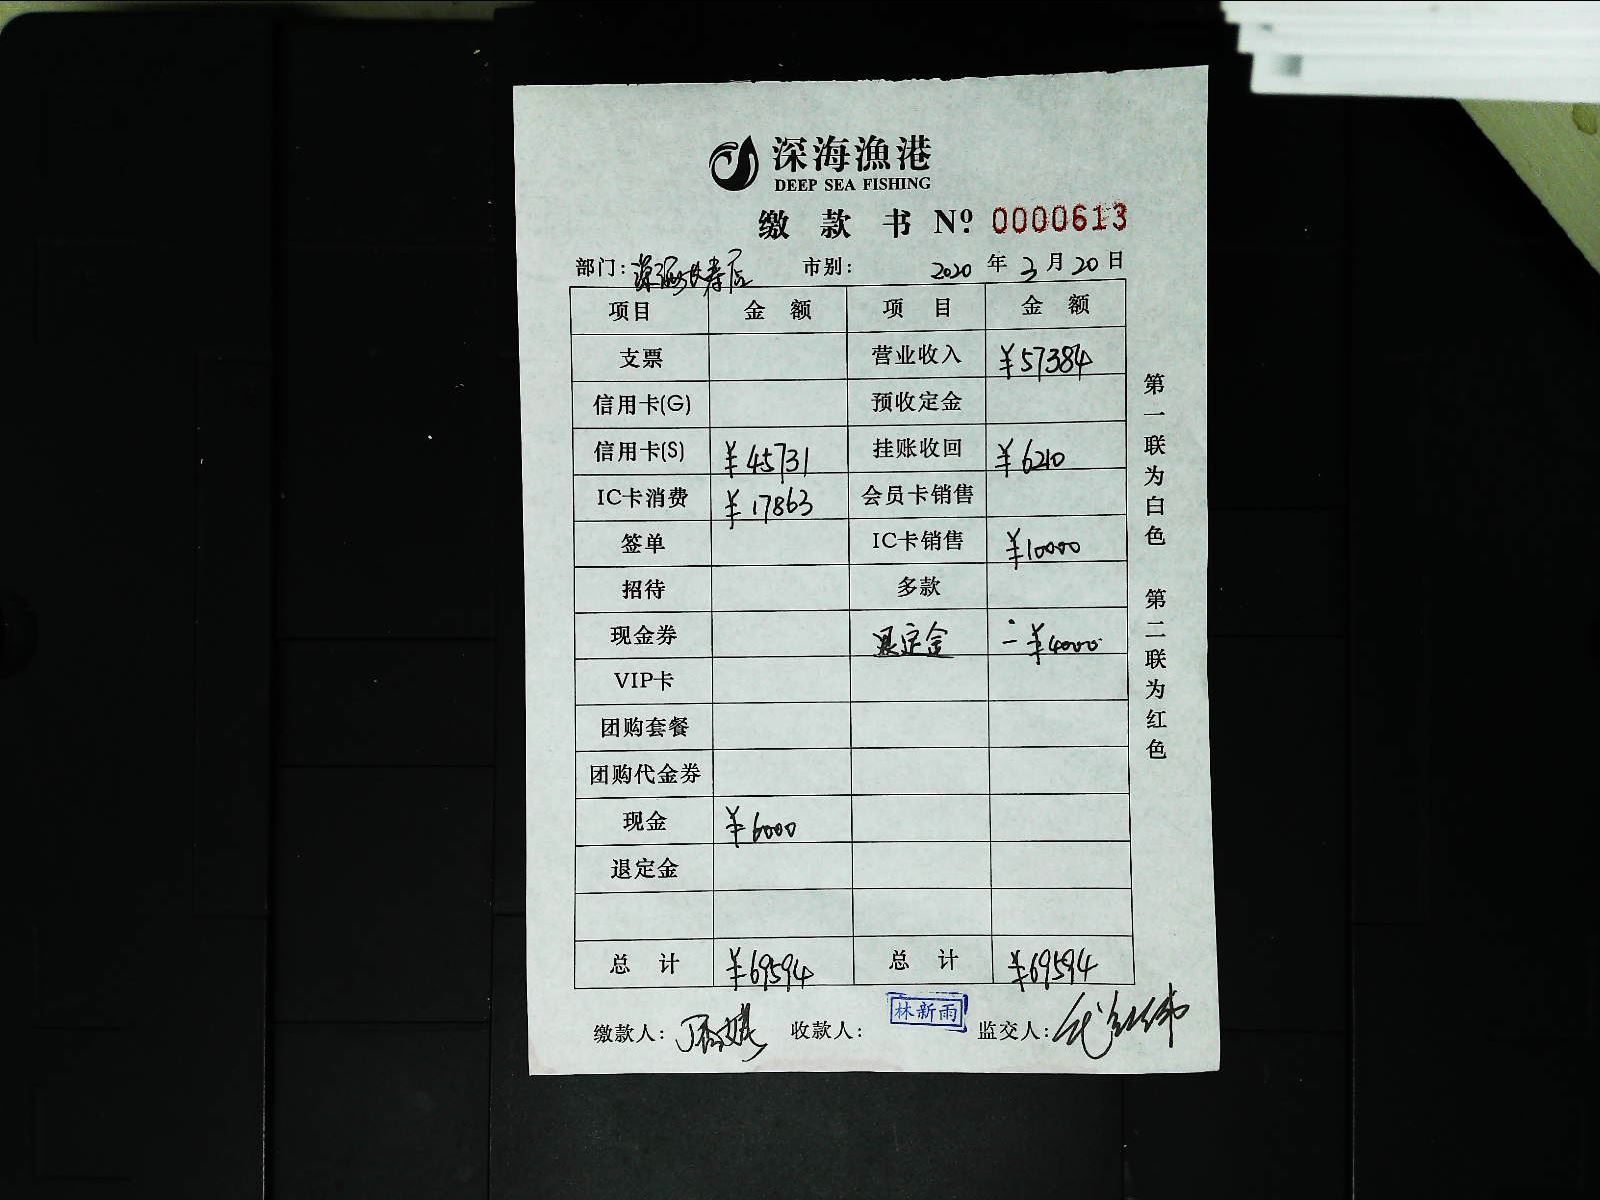 深海漁港
DEEP SEA FISHING
缴 款 书 Nº: 0000613
部门: 深海长寿店 市别: 2020 年 3 月 20 日
项目 金 额 项 目 金 额
支票 营业收入 ¥57384
信用卡(G) 预收定金
信用卡(S) ¥45731 挂账收回 ¥6210
IC卡消费 ¥17863 会员卡销售
签单 IC卡销售 ¥10000
招待 多款
现金券 退定金 - ¥4000
VIP卡
团购套餐
团购代金券
现金 ¥6000
退定金
总 计 ¥69594 总 计 ¥69594
缴款人: 收款人: 林新雨 监交人:
第一联为白色 第二联为红色